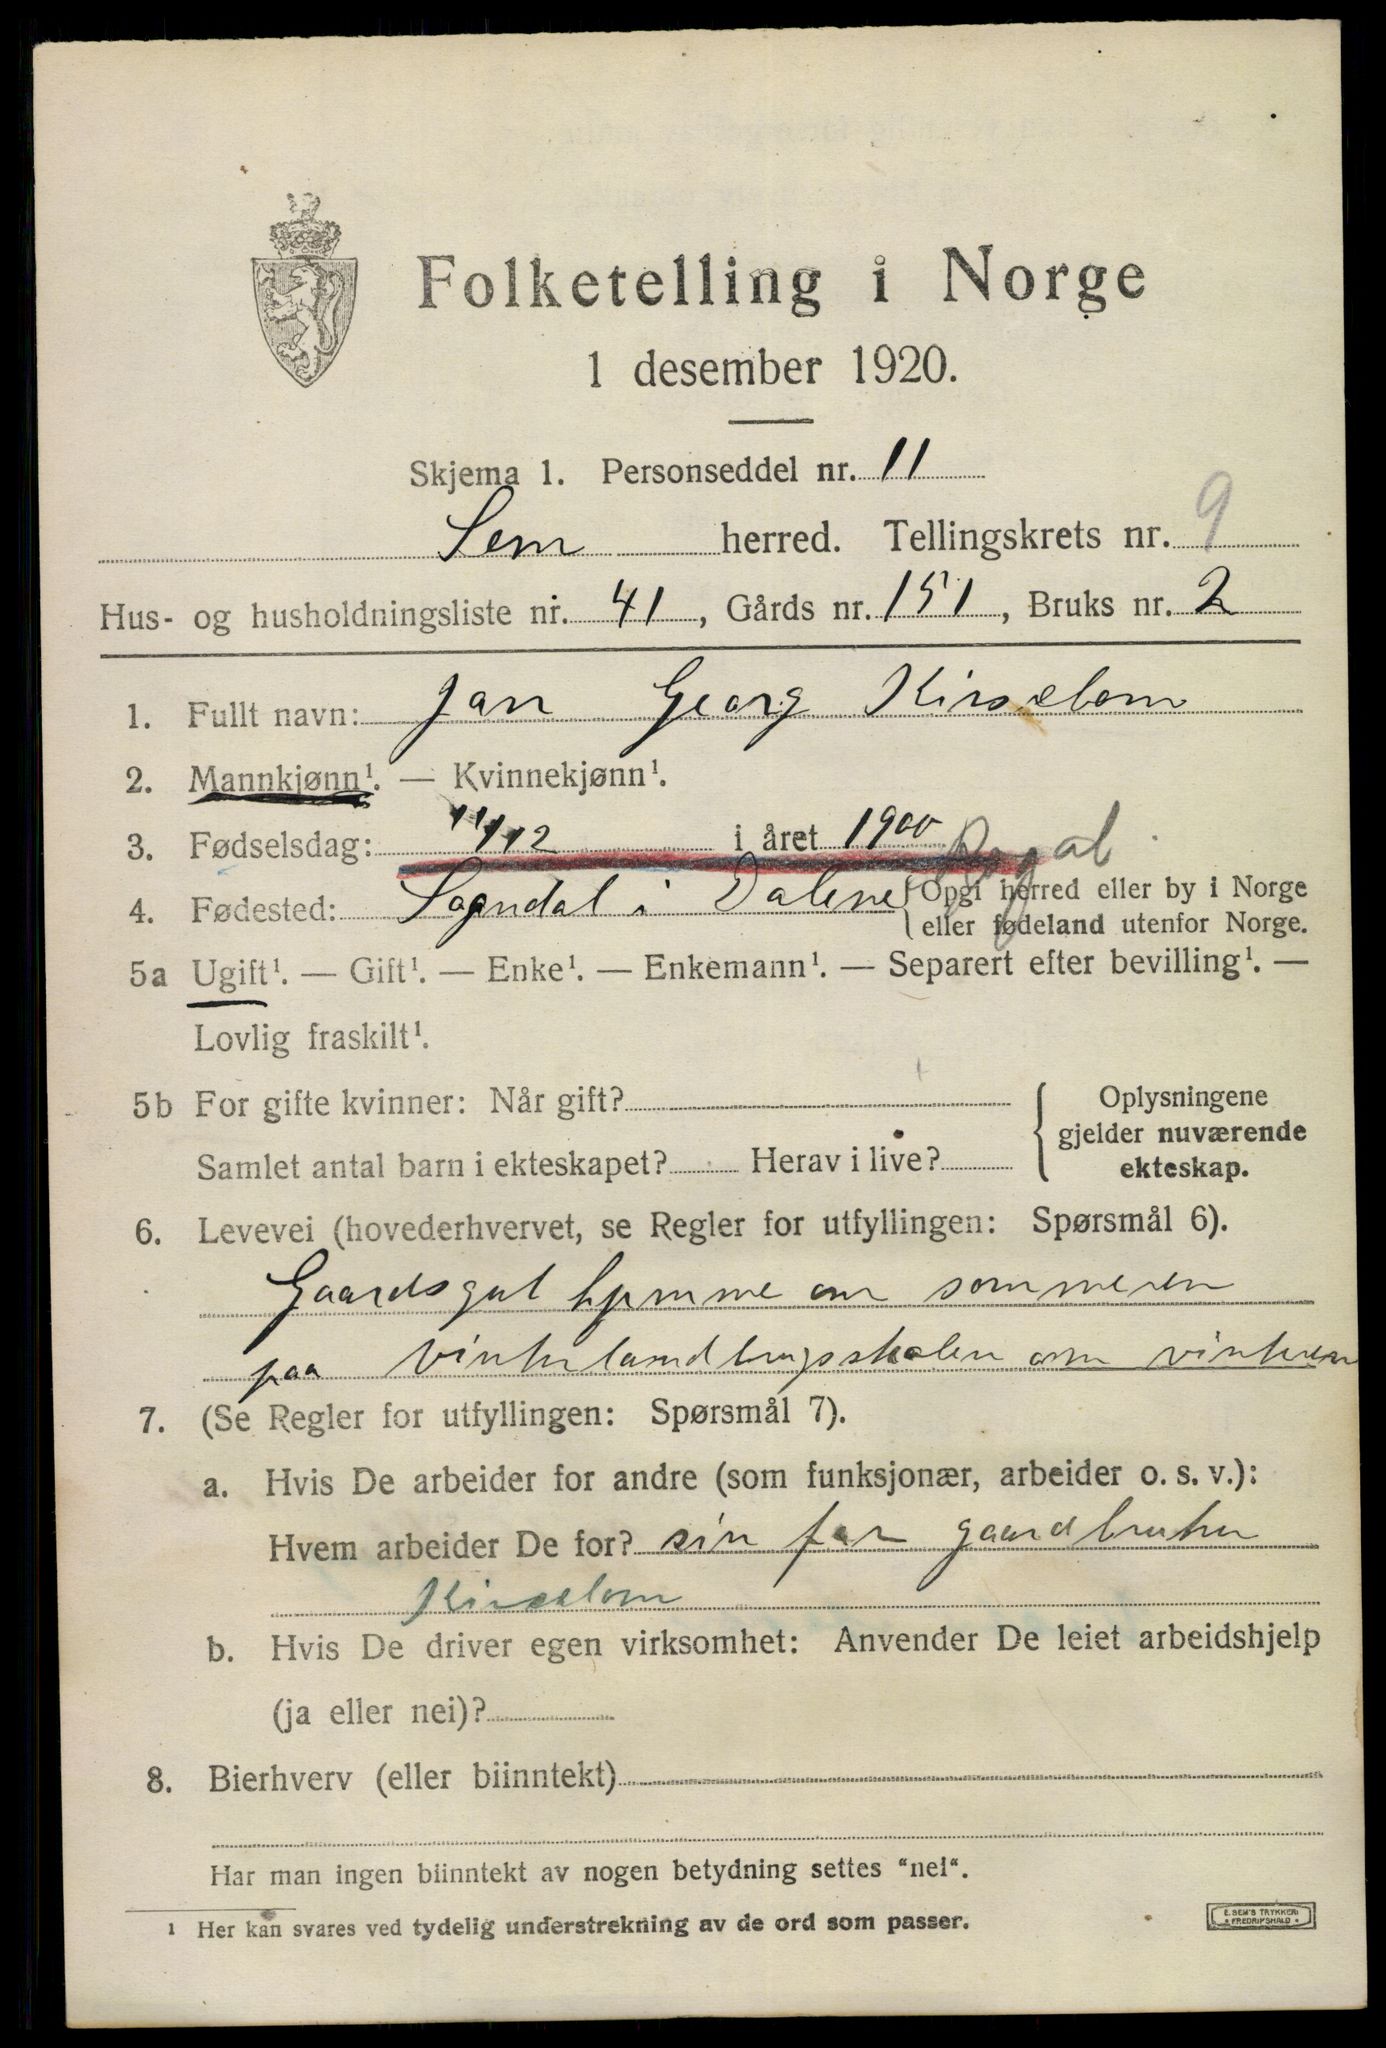 Folketelling i Norge
1 desember 1920.
Skjema 1. Personseddel nr. 11
Sem herred. Tellingskrets nr. 9
Hus- og husholdningsliste nr. 41, Gårds nr. 151, Bruks nr. 2
1. Fullt navn: Jan Georg Kirsebom
2. Mannkjønn¹. — Kvinnekjønn¹.
3. Fødselsdag: 11/12 i året 1900
Rogal
4. Fødested: Sogndal i Dalene {Opgi herred eller by i Norge
eller fødeland utenfor Norge.
5a Ugift¹. — Gift¹. — Enke¹. — Enkemann¹. — Separert efter bevilling¹. —
Lovlig fraskilt¹.
5b For gifte kvinner: Når gift? { Oplysningene
gjelder nuværende
Samlet antal barn i ekteskapet? Herav i live? ekteskap.
6. Levevei (hovederhvervet, se Regler for utfyllingen: Spørsmål 6).
Gaardsgut hjemme om sommeren
paa Vinterlandbrugsskolen om vinteren
7. (Se Regler for utfyllingen: Spørsmål 7).
a. Hvis De arbeider for andre (som funksjonær, arbeider o. s. v.):
Hvem arbeider De for? sin far gaardbruker
Kirsebom
b. Hvis De driver egen virksomhet: Anvender De leiet arbeidshjelp
(ja eller nei)?
8. Bierhverv (eller biinntekt)
Har man ingen biinntekt av nogen betydning settes "nei".
¹ Her kan svares ved tydelig understrekning av de ord som passer.
E. SEM'S TRYKKERI
FREDRIKSHALD